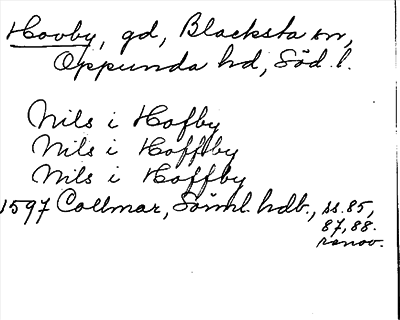 Hovby, gd, Blacksta sn,
Oppunda hd, Söd. l.
Nils i Hofby
Nils i Hoffby
Nils i Hoffby
1597 Collmar, Söml. hdb., ss. 85,
87, 88.
renov.